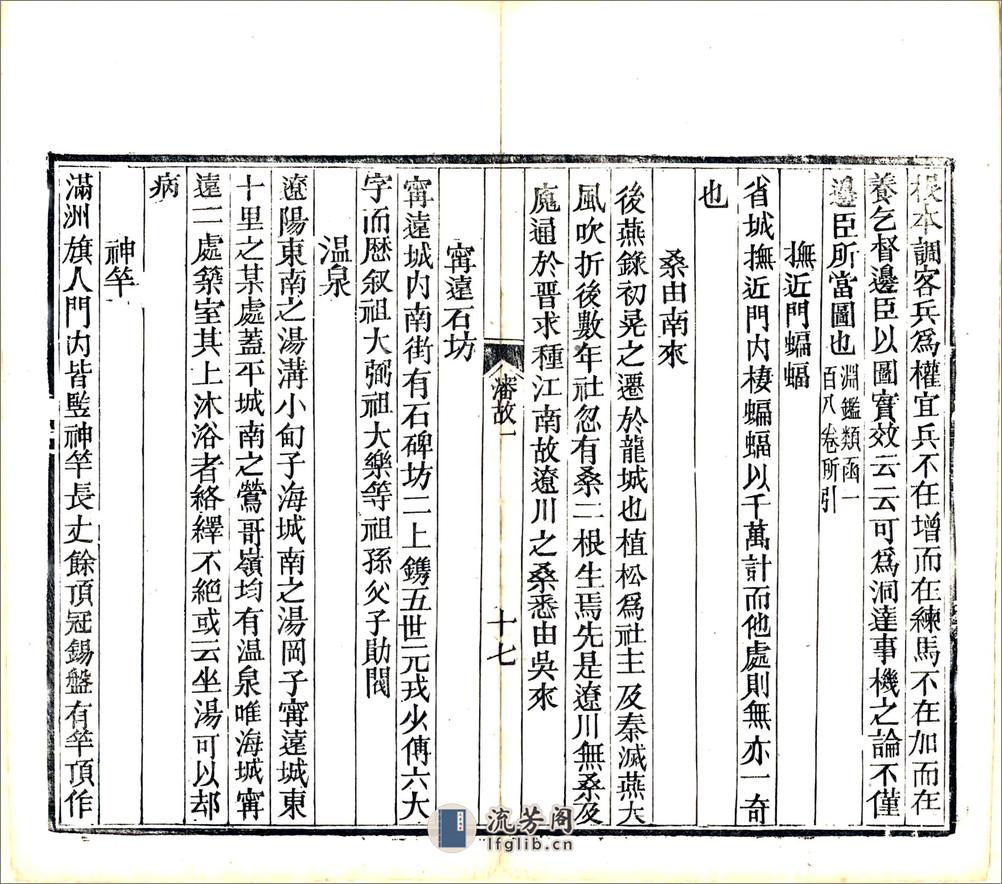 根本調客兵爲權宜兵不在增而在練馬不在加而在
養乞督邊臣以圖實效云云可爲洞達事機之論不僅
邊臣所當圖也淵鑑類函一
百八卷所引
撫近門蝙蝠
省城撫近門内棲蝙蝠以千萬計而他處則無亦一奇
也
桑由南來
後燕錄初晃之遷於龍城也植松爲社主及秦滅燕大
風吹折後數年社忽有桑二根生焉先是遼川無桑及
廆通於晋求種江南故遼川之桑悉由吳來
瀋故一
十七
甯遠石坊
甯遠城内南街有石碑坊二上鐫五世元戎少傅六大
字而歷叙祖大弼祖大樂等祖孫父子勛閥
温泉
遼陽東南之湯溝小甸子海城南之湯岡子甯遠城東
十里之某處蓋平城南之鶯哥嶺均有温泉唯海城甯
遠二處築室其上沐浴者絡繹不絕或云坐湯可以却
病
神竿
滿洲旗人門内皆竪神竿長丈餘頂冠錫盤有竿頂作
流芳阁
lfglib.cn